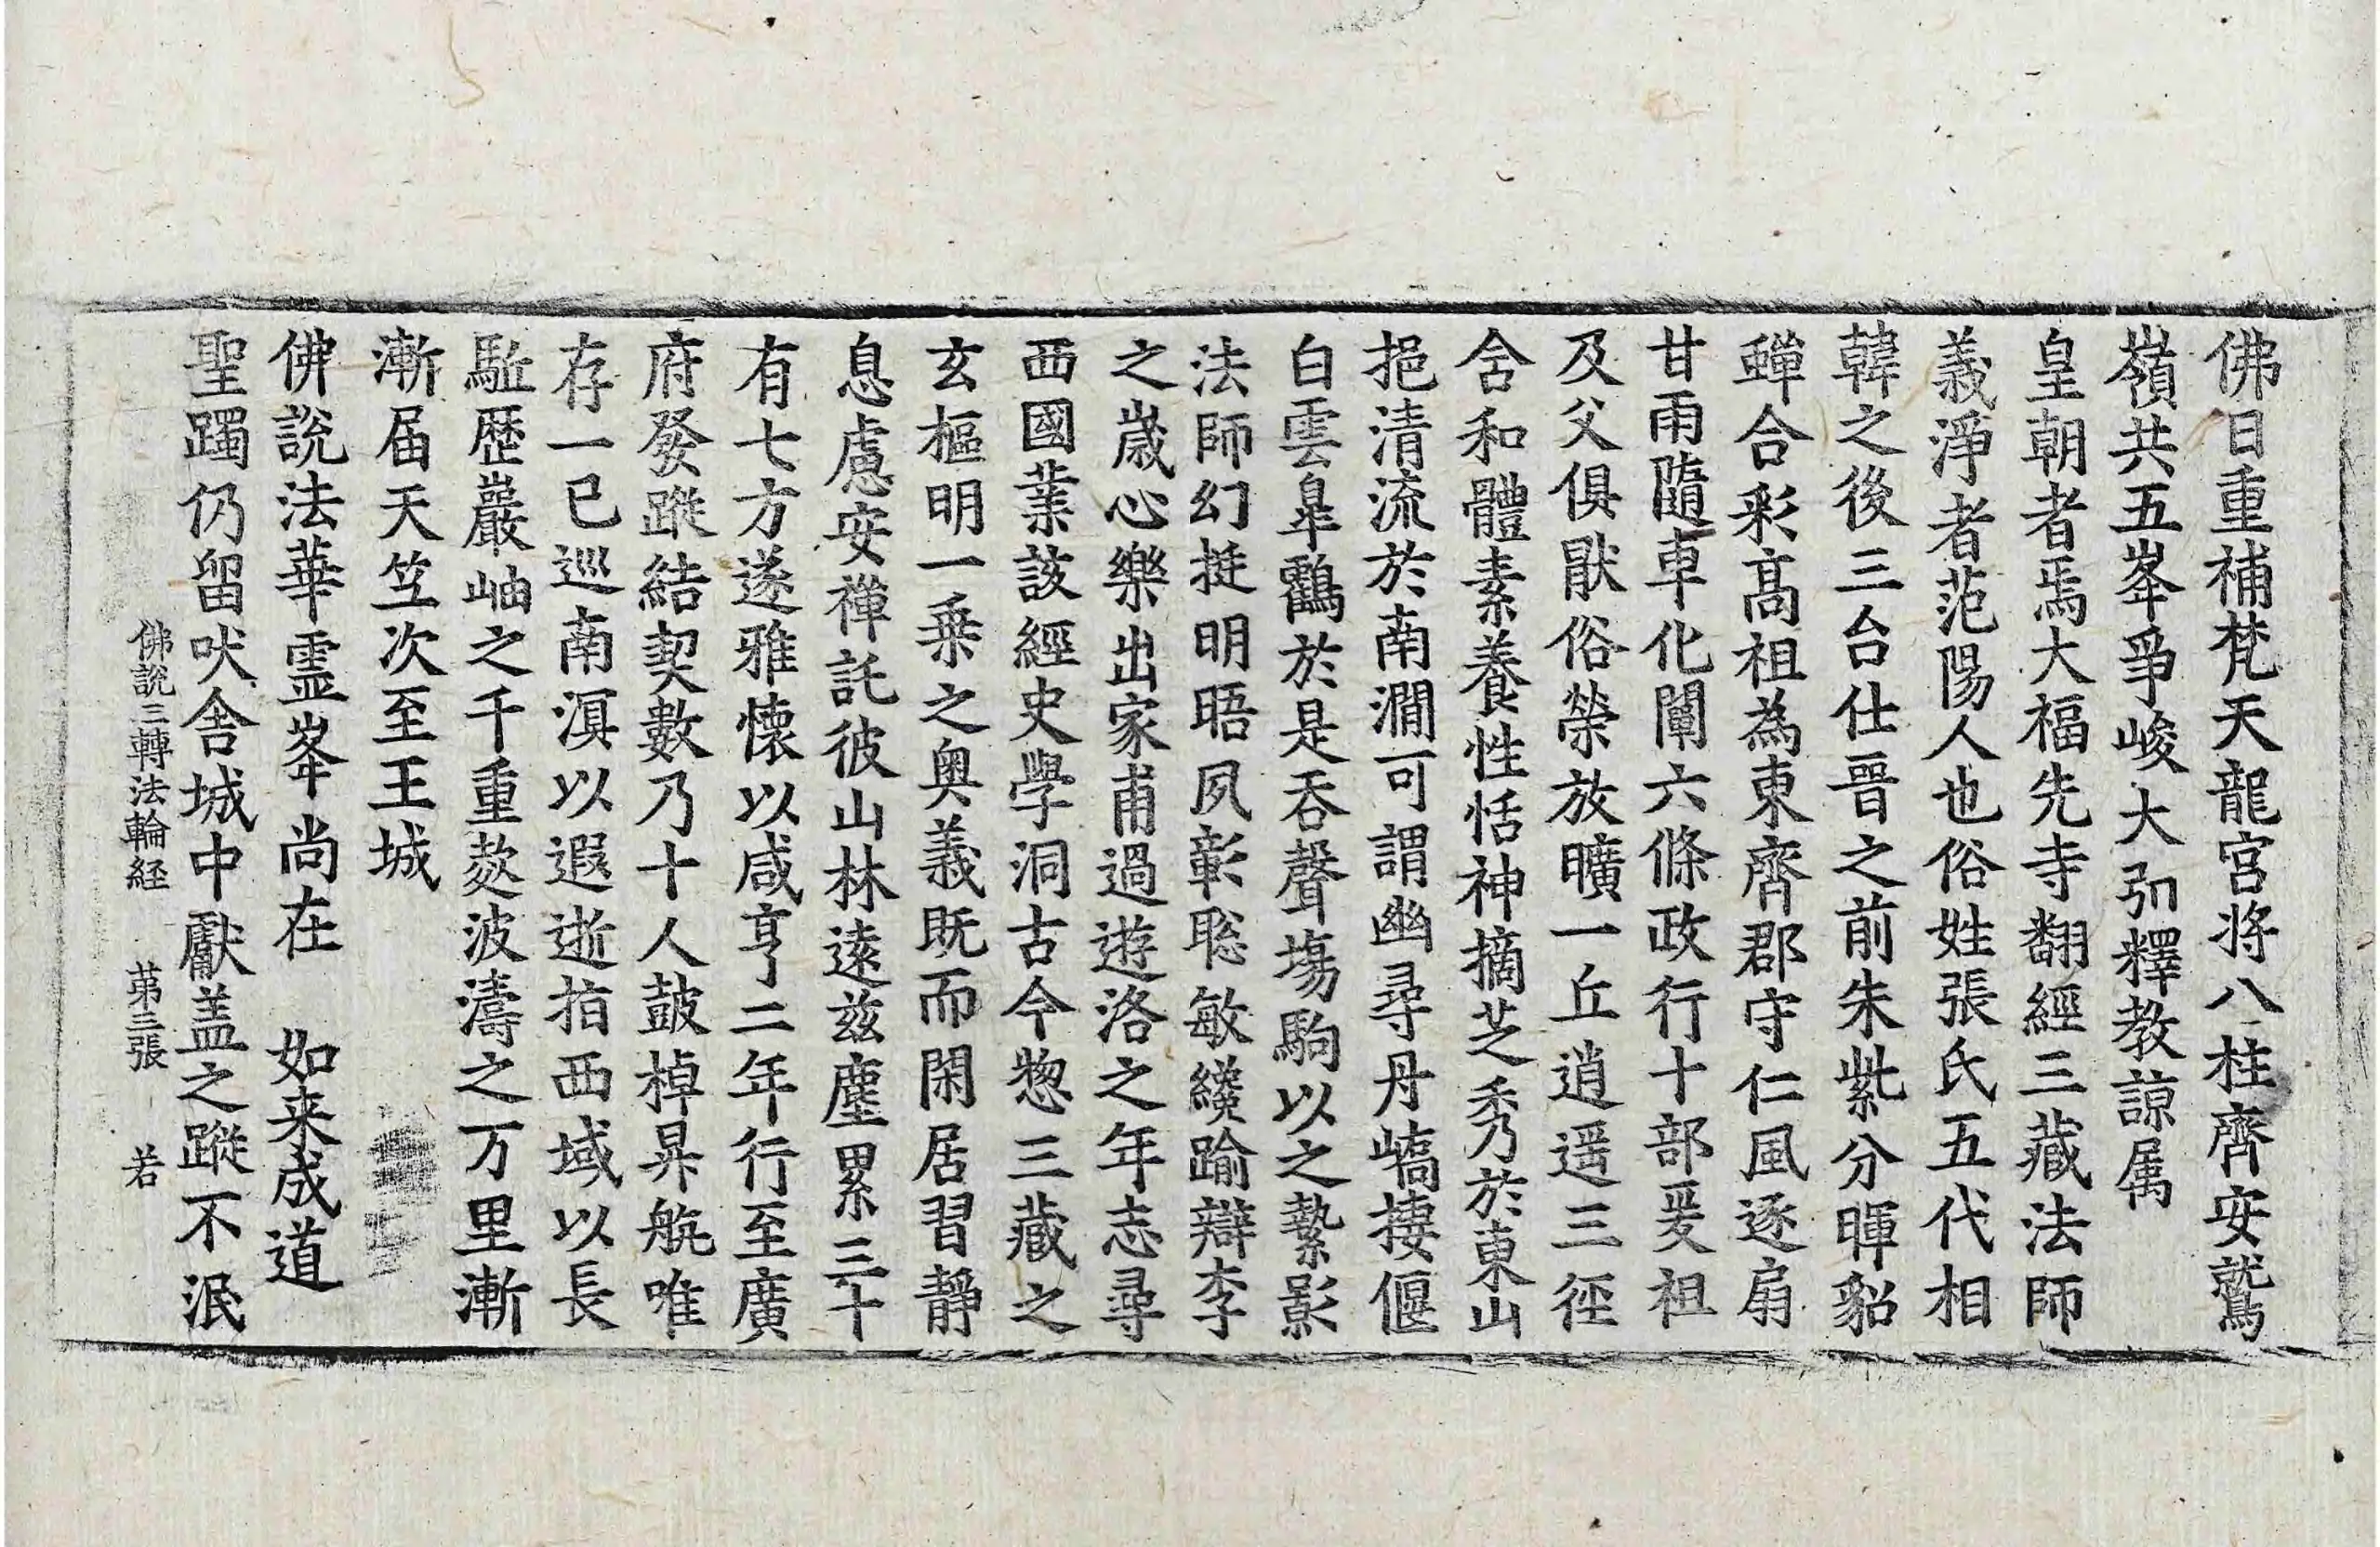 佛日重補梵天龍宮將八柱齊安鷲
嶺共五峯爭峻大弘釋教諒属
皇朝者焉大福先寺翻經三藏法師
義淨者范陽人也俗姓張氏五代相
韓之後三台仕晉之前朱紫分暉貂
蟬合彩髙祖為東齊郡守仁風逐扇
甘雨隨車化闡六條政行十部爰祖
及父俱猒俗榮放曠一丘逍遥三徑
含和體素養性恬神摘芝秀於東山
挹清流於南澗可謂幽尋丹嶠棲偃
白雲皐鸖於是吞聲塲駒以之縶影
法師幻挺明晤夙彰聡敏纔踰辯李
之歳心樂出家甫過遊洛之年志尋
西國業該經史學洞古今惣三藏之
玄樞明一乗之奥義既而閑居習靜
息慮安禪託彼山林遠兹塵累三十
有七方遂雅懷以咸亨二年行至廣
府發蹤結契數乃十人鼓棹昇航唯
存一已巡南溟以遐逝指西域以長
駈歴巖岫之千重菱波濤之万里漸
漸届天笁次至王城
佛說法華靈峯尚在 如来成道
聖躅仍留吠舍城中獻盖之蹤不泯
佛說三轉法輪経 苐三張 若